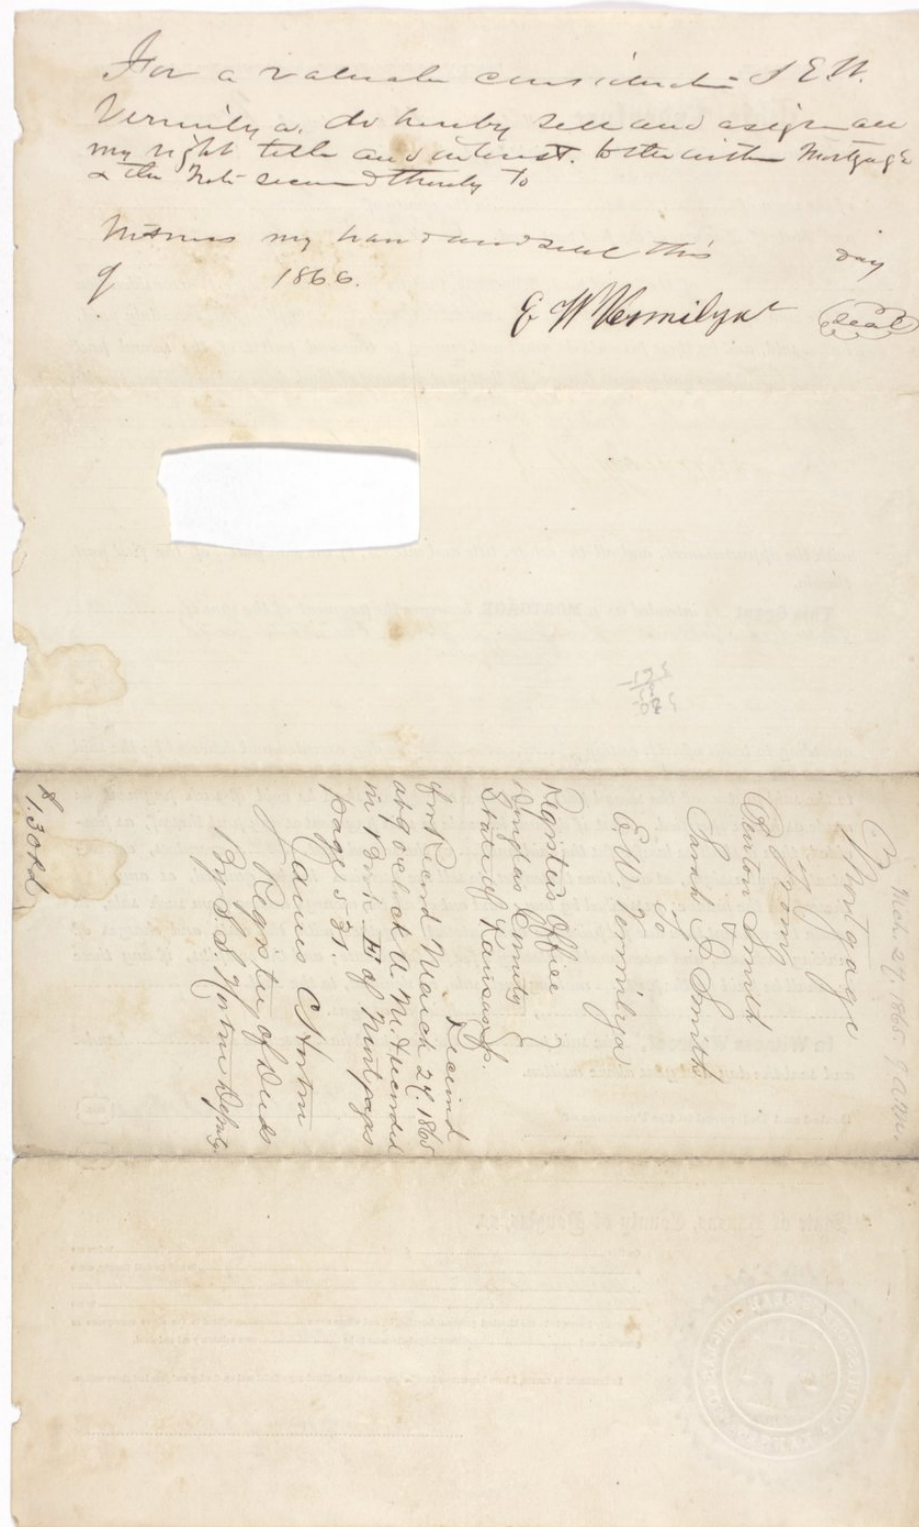 For a valuable consideration I E.W.
Vermilya. do hereby sell and asign all
my right title and interest. to the within Mortgage
& the Note secured thereby To
Witness my hand and seal this day
of 1866.
E W Vermilya Seal
Mch. 27. 1865. 9 a.m.
Mortgage
From
Benton Smith
&
Sarah J. Smith
To
E.W. Vermilya
Registers Office
Douglas County
State of Kansas ss.
Received
for Record March 27. 1865
at 9 oclock A. M. & recorded
in Book F of Mortgages
page 531.
James C Horton
Register of Deeds
By S. S. Horton Deputy
$1.30 Pd